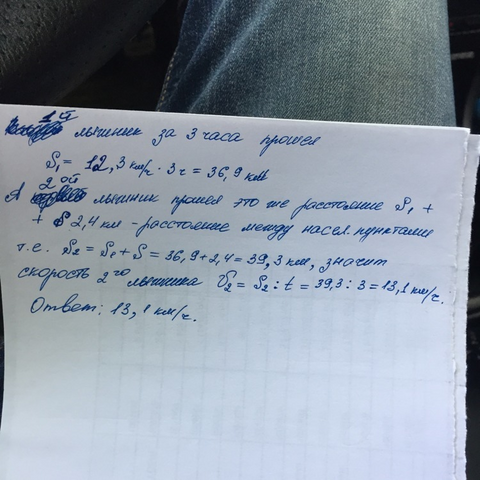 1й лыжник за 3 часа прошел
S₁ = 12,3 км/ч · 3ч = 36,9 км
А 2ой лыжник прошел это же расстояние S₁ +
+ S 2,4 км - расстояние между насел. пунктами
т.е. S₂ = S₁ + S = 36,9 + 2,4 = 39,3 км, значит
скорость 2го лыжника V₂ = S₂ : t = 39,3 : 3 = 13,1 км/ч.
Ответ: 13,1 км/ч.